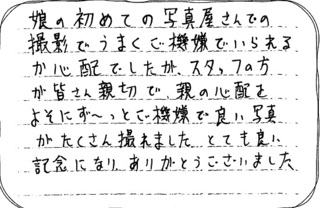 娘の初めての写真屋さんでの
撮影でうまくご機嫌でいられる
か心配でしたが、スタッフの方
が皆さん親切で、親の心配を
よそにず〜っとご機嫌で良い写真
がたくさん撮れました。とても良い
記念になり、ありがとうございました